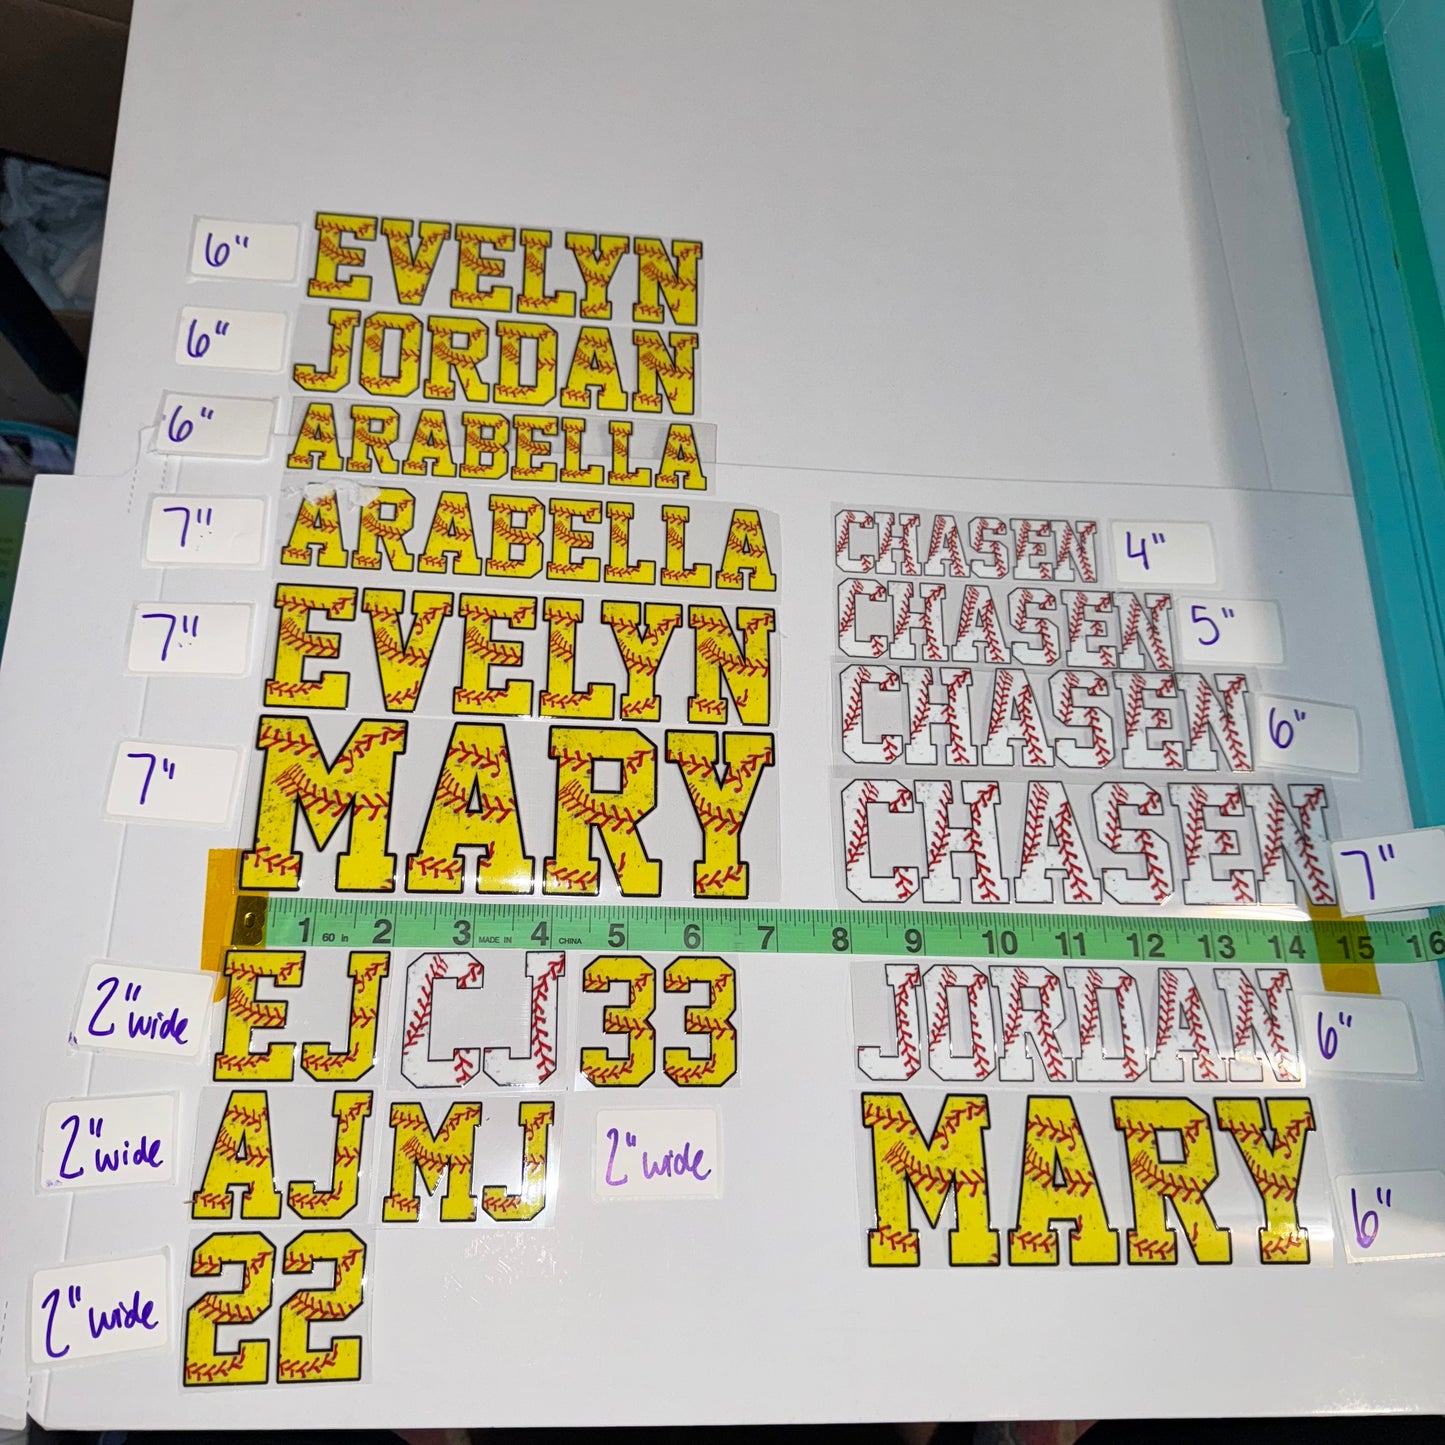 6" EVELYN
6" JORDAN
6" ARABELLA
7" ARABELLA
7" EVELYN
7" MARY
CHASEN 4"
CHASEN 5"
CHASEN 6"
CHASEN 7"
0 1 60 in 2 3 MADE IN 4 CHINA 5 6 7 8 9 10 11 12 13 14 15 16
2" wide EJ CJ 33
2" wide AJ MJ 2" wide
2" wide 22
JORDAN 6"
MARY 6"